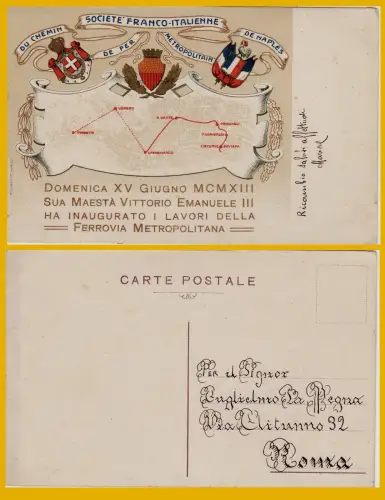 SOCIÉTÉ FRANCO-ITALIENNE
DU CHEMIN DE FER MÉTROPOLITAIN DE NAPLES
VOMERO
DOMENICA XV GIUGNO MCMXIII
SUA MAESTÀ VITTORIO EMANUELE III
HA INAUGURATO I LAVORI DELLA
FERROVIA METROPOLITANA
Ricambio saluti affettuosi
CARTE POSTALE
Per il Signor
Guglielmo La Pegna
Via Clitunno 32
Roma